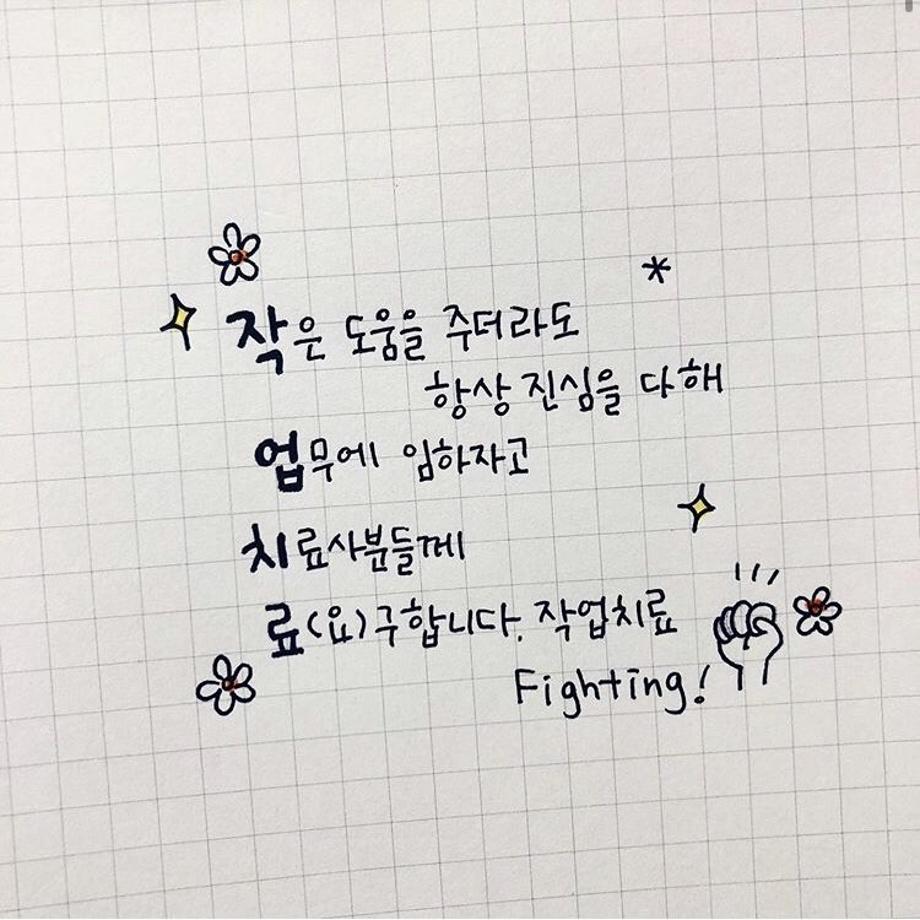 작은 도움을 주더라도
항상 진심을 다해
업무에 임하자고
치료사분들께
료(요)구합니다. 작업치료
Fighting!